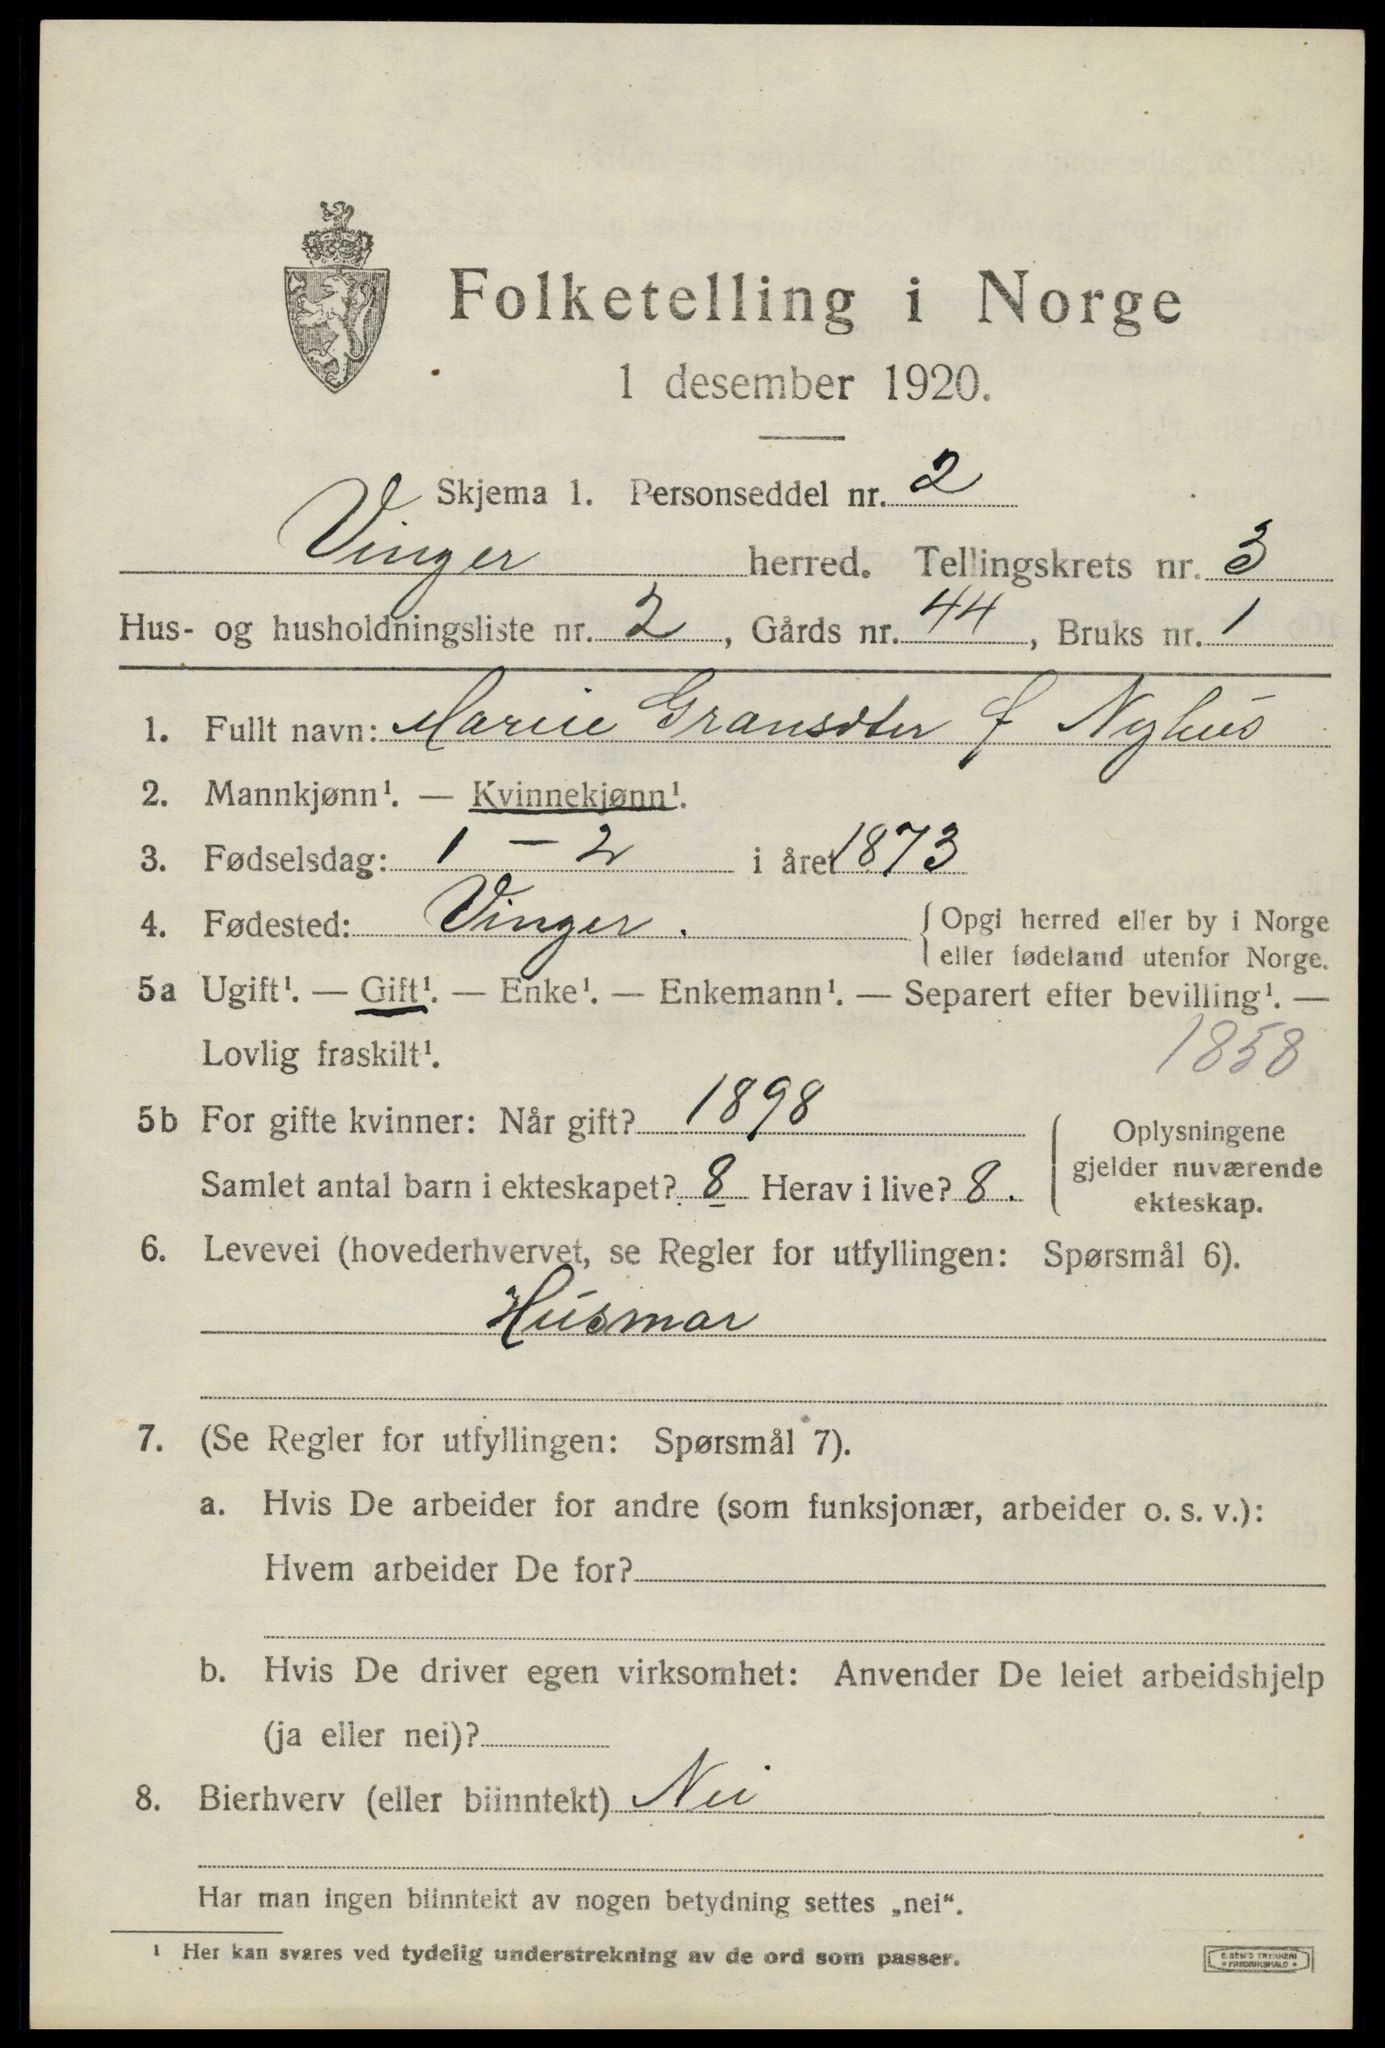 Folketelling i Norge
1 desember 1920.
Skjema 1. Personseddel nr. 2
Vinger herred. Tellingskrets nr. 3
Hus- og husholdningsliste nr. 2, Gårds nr. 44, Bruks nr. 1
1. Fullt navn: Marie f Nyhus
2. Mannkjønn¹. — Kvinnekjønn¹.
3. Fødselsdag: 1 – 2 i året 1873
4. Fødested: Vinger. { Opgi herred eller by i Norge
eller fødeland utenfor Norge.
5a Ugift¹. — Gift¹. — Enke¹. — Enkemann¹. — Separert efter bevilling¹. —
Lovlig fraskilt¹. 1858
5b For gifte kvinner: Når gift? 1898
Samlet antal barn i ekteskapet? 8 Herav i live? 8.
Oplysningene
gjelder nuværende
ekteskap.
6. Levevei (hovederhvervet, se Regler for utfyllingen: Spørsmål 6).
Husmor
7. (Se Regler for utfyllingen: Spørsmål 7).
a. Hvis De arbeider for andre (som funksjonær, arbeider o. s. v.):
Hvem arbeider De for?
b. Hvis De driver egen virksomhet: Anvender De leiet arbeidshjelp
(ja eller nei)?
8. Bierhverv (eller biinntekt) Nei
Har man ingen biinntekt av nogen betydning settes „nei“.
¹ Her kan svares ved tydelig understrekning av de ord som passer.